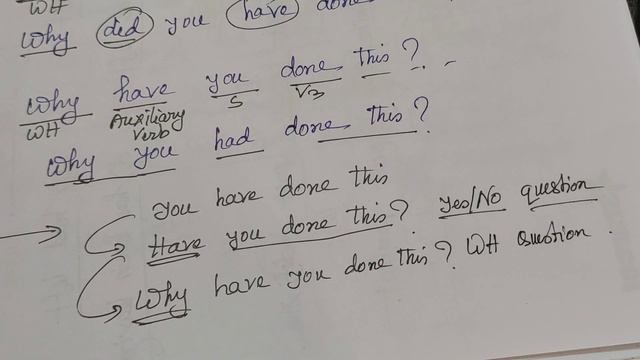 WH
Why did you have done
Why have you done this ?
WH Auxiliary Verb S V3
Why you had done this ?
You have done this
Have you done this ? Yes/No question
Why have you done this ? WH Question .